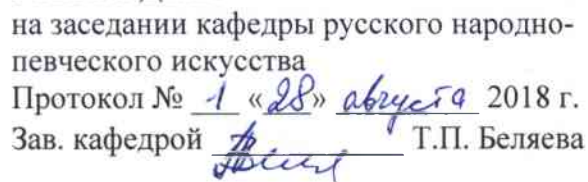 на заседании кафедры русского народно-
певческого искусства
Протокол № 1 «28» августа 2018 г.
Зав. кафедрой Т.П. Беляева